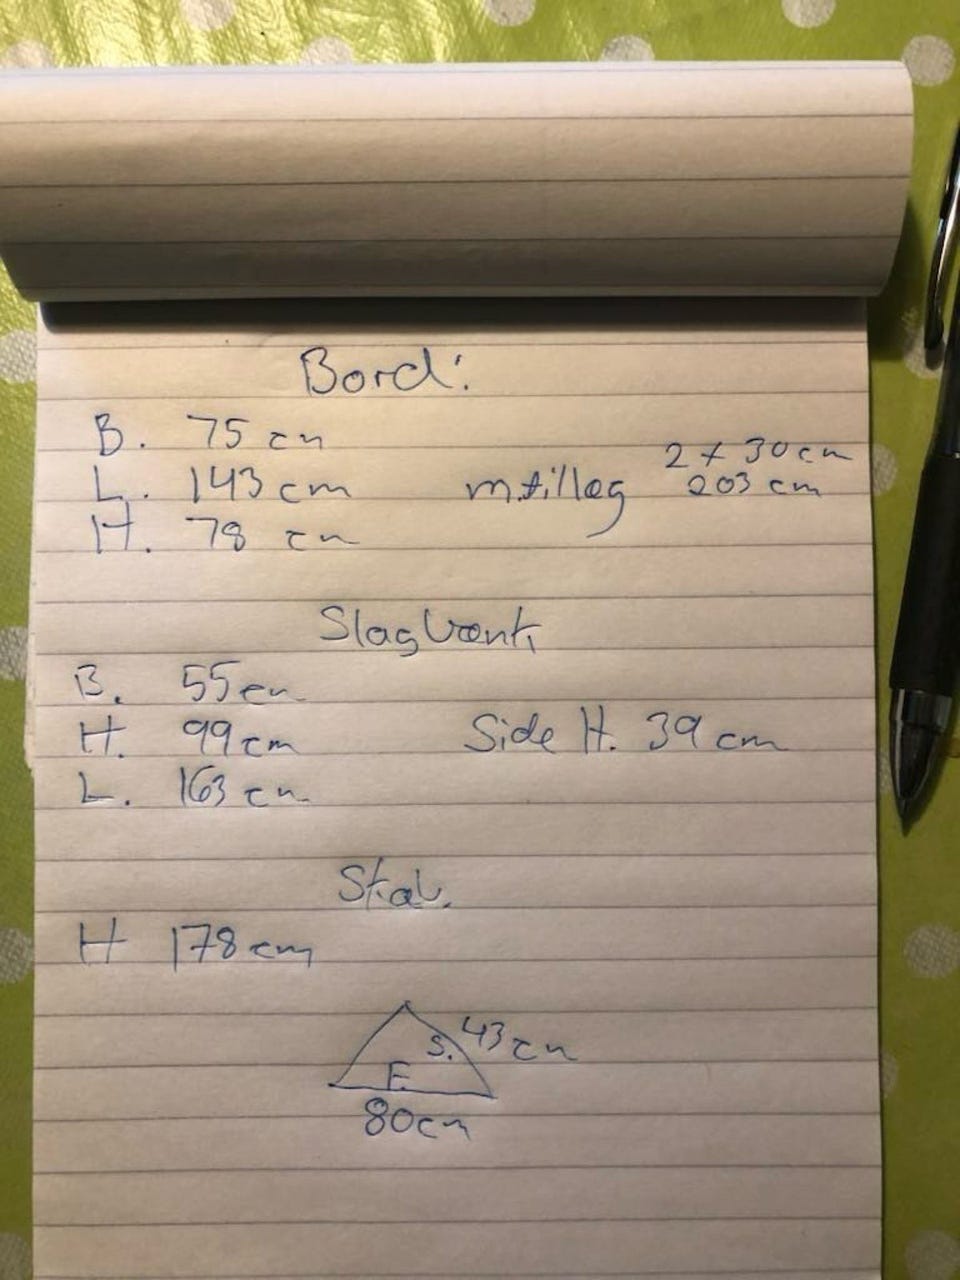 Bord:
B. 75 cm
2 x 30 cm
L. 143 cm m. tillæg 203 cm
H. 78 cm
Slagbænk
B. 55 cm
H. 99 cm Side H. 39 cm
L. 163 cm
H 178 cm
S. 43 cm
F.
80 cm